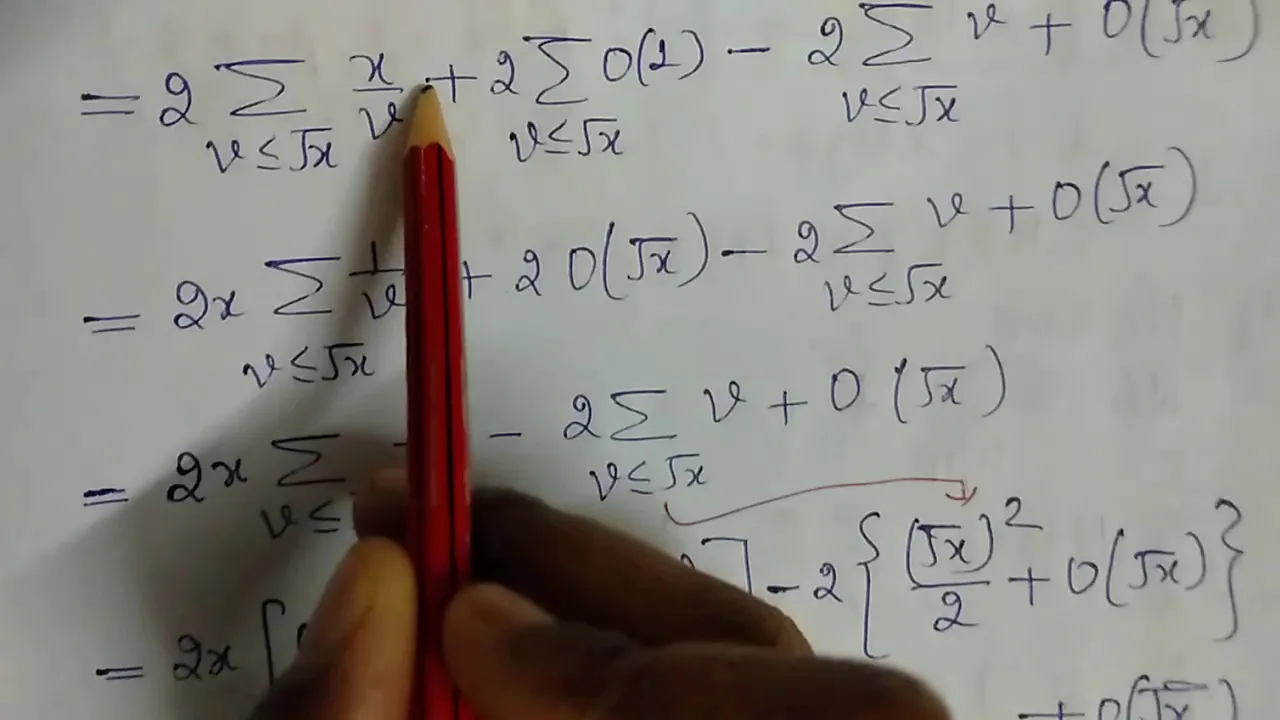 = 2 ∑_{v≤√x} x/v + 2 ∑_{v≤√x} O(1) - 2 ∑_{v≤√x} v + O(√x)
= 2x ∑_{v≤√x} 1/v + 2 O(√x) - 2 ∑_{v≤√x} v + O(√x)
= 2x ∑ v≤ - 2 ∑_{v≤√x} v + O(√x)
= 2x [ ] - 2 { (√x)^2/2 + O(√x) }
+ O(√x)